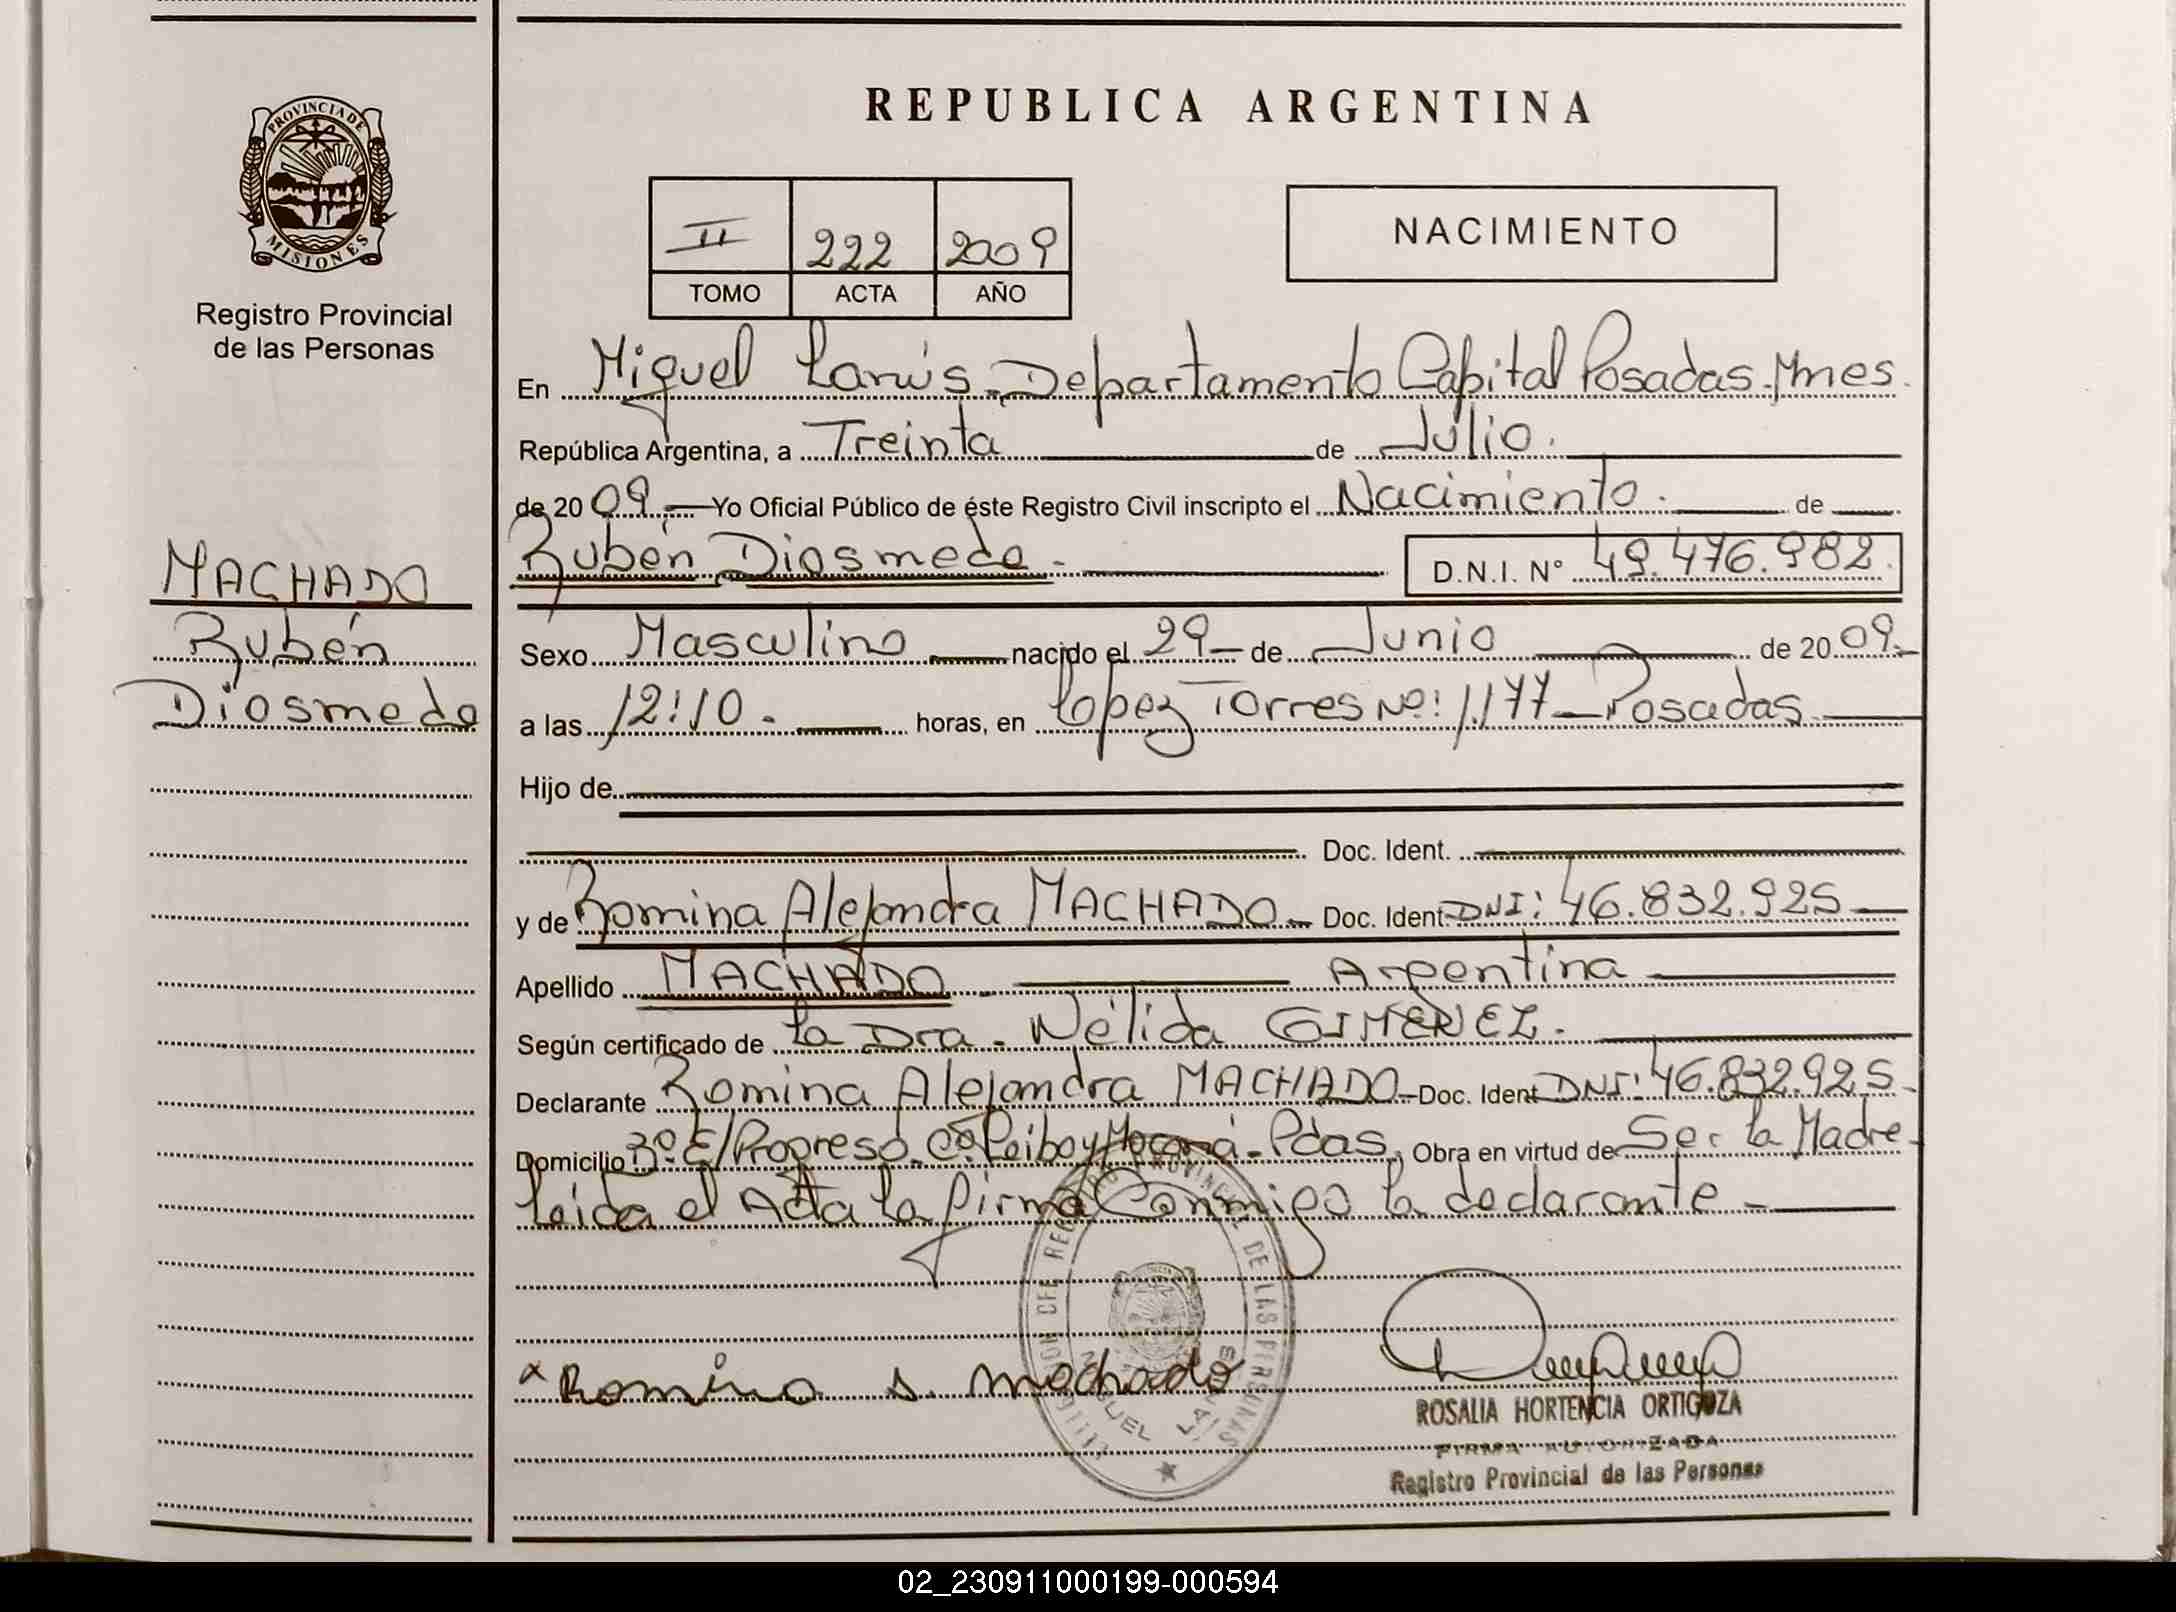 REPUBLICA ARGENTINA
PROVINCIA DE MISIONES
Registro Provincial
de las Personas
II 222 2009
TOMO ACTA AÑO
NACIMIENTO
En Miguel Lanús - Departamento Capital Posadas - Mnes.
República Argentina, a Treinta de Julio.
de 2009.- Yo Oficial Público de éste Registro Civil inscripto el Nacimiento. de
Rubén Diosmede - D.N.I. N° 49.476.982.
MACHADO
Rubén
Diosmede
Sexo Masculino nacido el 29 - de Junio de 2009.-
a las 12:10. horas, en Lopez Torres Nº: 1.177 - Posadas
Hijo de
Doc. Ident.
y de Romina Alejandra MACHADO - Doc. Ident. DNI: 46.832.925 -
Apellido MACHADO - Argentina
Según certificado de La Dra. Nélida GIMENEZ.
Declarante Romina Alejandra MACHADO - Doc. Ident DNI: 46.832.925 -
Domicilio Bº. E/Progreso - Moconá - Pdas, Obra en virtud de Ser la Madre -
Leida el Acta la firma Conmigo la declarante -
x Romina A. Machado
DE LAS PERSONAS
MIGUEL LANUS
ROSALIA HORTENCIA ORTIGOZA
FIRMA AUTORIZADA
Registro Provincial de las Personas
02_230911000199-000594